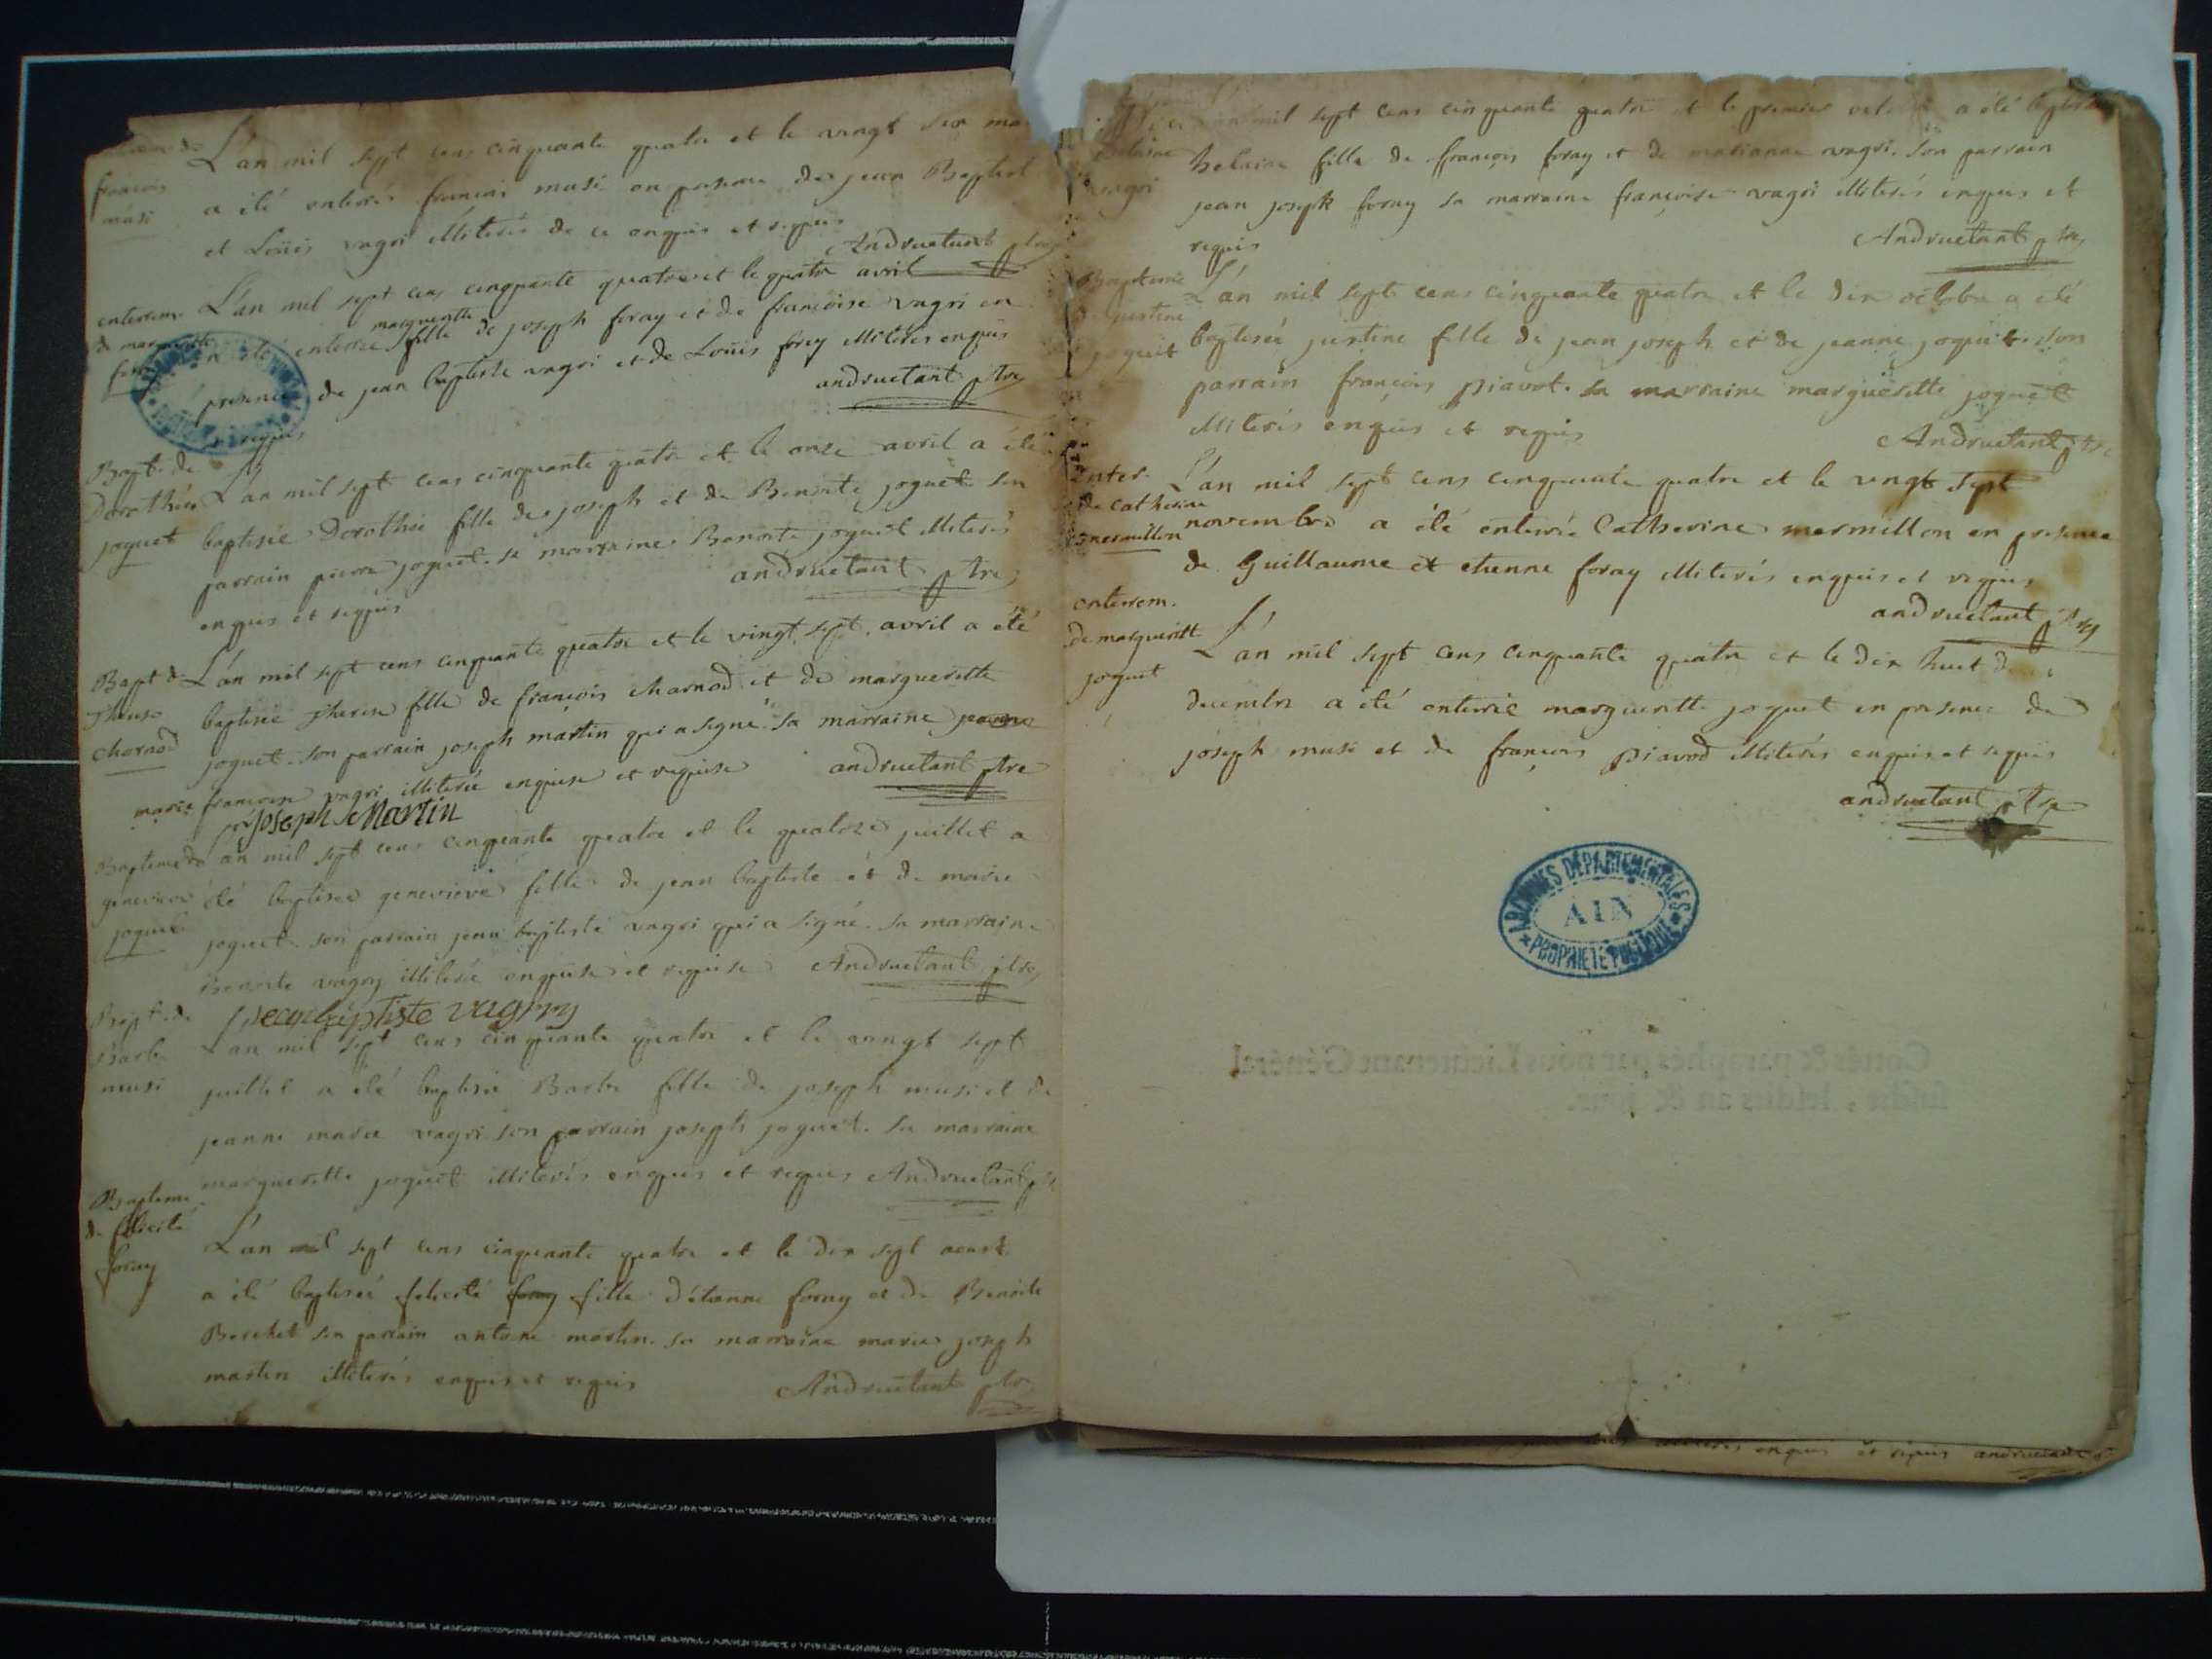 françois
musi
L'an mil sept cens cinquante quatre et le vingt six
a été enterré françois musi en presence de jean Baptist
et Loüis vagri illiterés de ce enquis et requis
Andruetant ptre
enterrem.
de marguerite
L'an mil sept cens cinquante quatre et le quatre avril
marguerite
enterrée fille de joseph foray et de françoise vagri en
presence de jean baptiste vagri et de Loüis foray illiterés enquis
et requis
andruetant ptre
Bapt. de
Dorothée
joquet
L'an mil sept cens cinquante quatre et le onze avril a été
baptisée Dorothée fille de joseph et de Benoite joquet son
parrain pierre joquet. sa marraine Benoite joquet illiterés
enquis et requis
andruetant ptre
Bapt de
therese
charnod
L'an mil sept cens cinquante quatre et le vingt sept avril a été
baptisée therese fille de françois charnod et de margueritte
joquet. son parrain joseph martin qui a signé. sa marraine
marie françoise vagri illiterée enquise et requise andruetant ptre
joseph Martin
Bapteme de
genevieve
joquet
L'an mil sept cens cinquante quatre et le quatorze juillet a
été baptisée genevieve fille de jean baptiste et de marie
joquet son parrain jean baptiste vagri qui a signé. sa marraine
Benoite vagry illiterée enquise et requise Andruetant ptre
jean baptiste vagry
Bapt. de
Barbe
musi
L'an mil sept cens cinquante quatre et le vingt sept
juillet a été baptisée Barbe fille de joseph musi et de
jeanne marie vagri son parrain joseph joquet. sa marraine
marguerette joquet illiterés enquis et requis Andruetant ptre
Bapteme
de felicité
foray
L'an mil sept cens cinquante quatre et le dix sept aoust
a été baptisée felicité foray fille d'étienne foray et de Benoite
Berchet son parrain antoine martin. sa marraine marie joseph
martin illiterés enquis et requis
Andruetant ptre
helaine
vagri
L'an mil sept cens cinquante quatre et le premier a été baptisée
helaine fille de françois foray et de marianne vagri. son parrain
jean joseph foray sa marraine françoise vagri illiterés enquis et
requis
Andruetant ptre
Bapteme
de justine
joquet
L'an mil sept cens cinquante quatre et le dix octobre a été
baptisée justine fille de jean joseph et de jeanne joquet. son
parrain françois piavot. sa marraine marguerette joquet
illiterés enquis et requis
Andruetant ptre
Enter.
de Catherine
mermillon
L'an mil sept cens cinquante quatre et le vingt sept
novembre a été enterrée Catherine mermillon en presence
de Guillaume et etienne foray illiterés enquis et requis
andruetant ptre
enterrem.
de margueritt
joquet
L'an mil sept cens cinquante quatre et le dix huit
decembre a été enterrée marguerette joquet en presence de
joseph musi et de françois piavod illiterés enquis et requis
andruetant ptre
ARCHIVES DEPARTEMENTALES
AIN
PROPRIETE PUBLIQUE
Cottés & paraphés par nous Lieutenant Général
susdit, lesdits an & jour.
enquis et requis andruetant